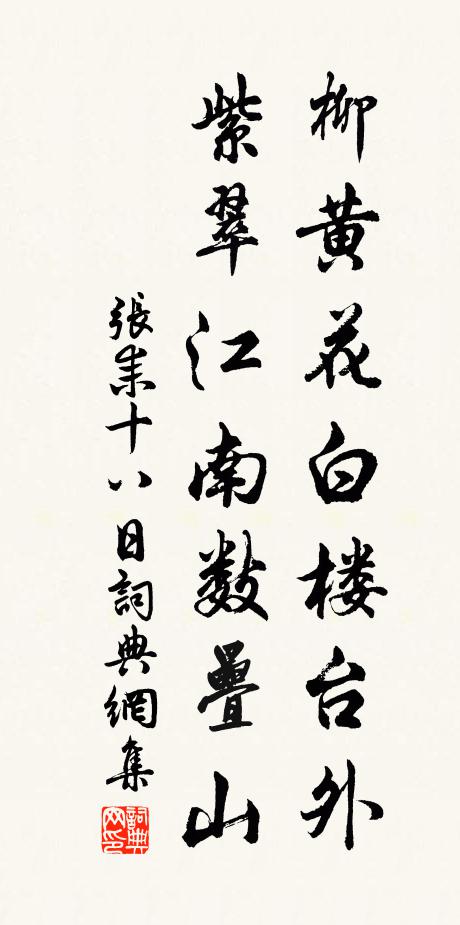 柳黄花白楼台外
紫翠江南数疊山
張耒十八日詞典網集
詞典网印